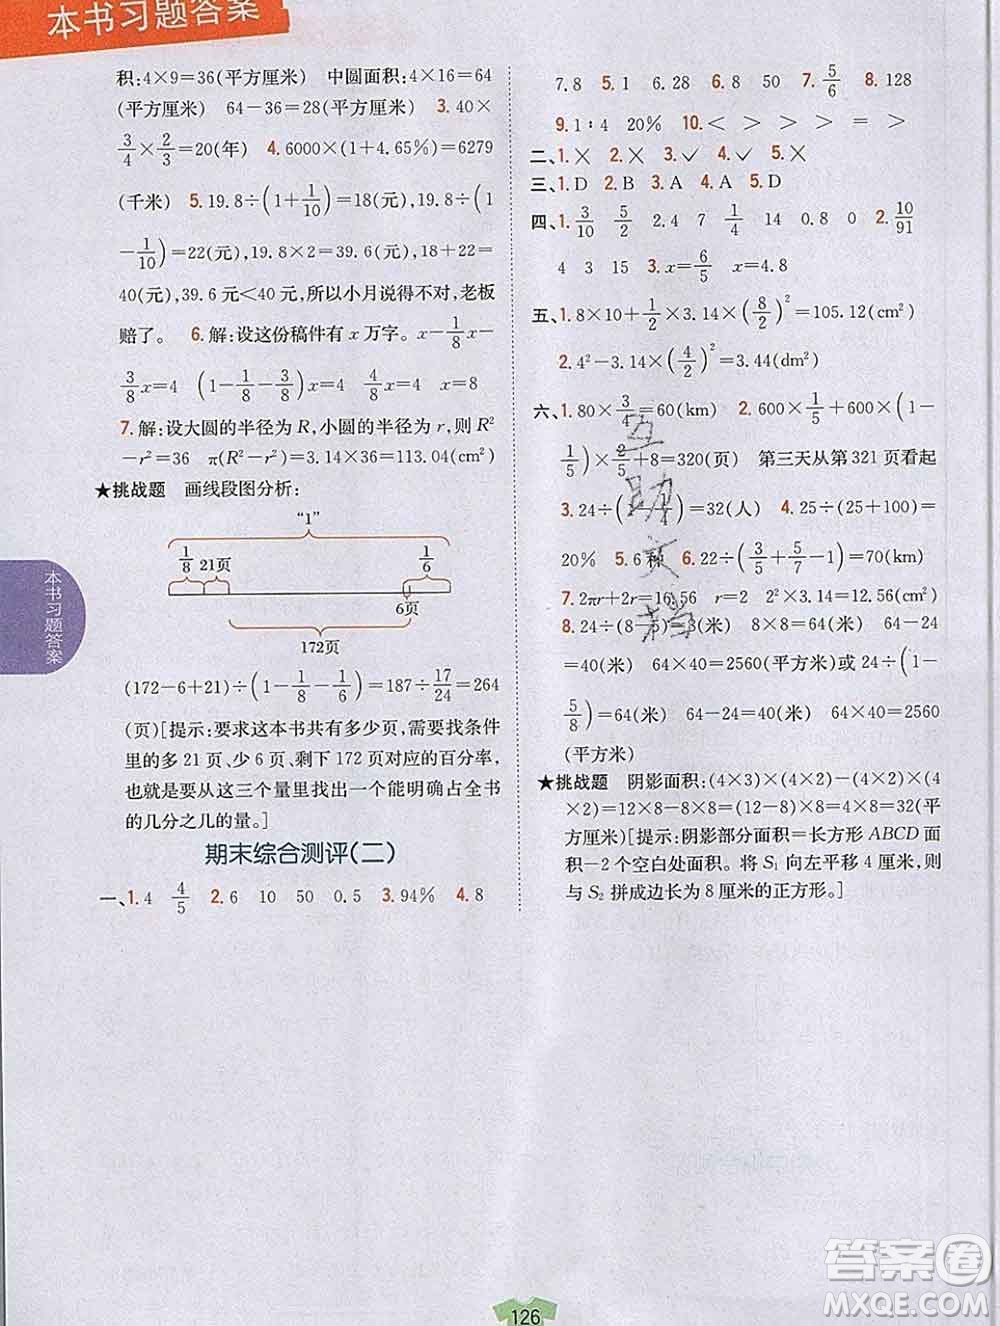 本书习题答案
积:4×9=36(平方厘米) 中圆面积:4×16=64
(平方厘米) 64-36=28(平方厘米) 3.40×
3/4×2/3=20(年) 4.6000×(1+4.65%)=6279
(千米) 5.19.8÷(1+1/10)=18(元),19.8÷(1
-1/10)=22(元),19.8×2=39.6(元),18+22=
40(元),39.6元<40元,所以小月说得不对,老板
赔了。 6.解:设这份稿件有x万字。x-1/8x-
3/8x=4 (1-1/8-3/8)x=4 4/8x=4 x=8
7.解:设大圆的半径为R,小圆的半径为r,则R²
-r²=36 π(R²-r²)=3.14×36=113.04(cm²)
★挑战题 画线段图分析:
“1”
1/8 21页 1/6
6页
172页
(172-6+21)÷(1-1/8-1/6)=187÷17/24=264
(页)[提示:要求这本书共有多少页,需要找条件
里的多21页、少6页、剩下172页对应的百分率,
也就是要从这三个量里找出一个能明确占全书
的几分之几的量。]
期末综合测评(二)
一、1.4 4/5 2.6 10 50 0.5 3.94% 4.8
7.8 5.1 6.28 6.8 50 7.5/6 8.128
9.1∶4 20% 10.< > > > = >
二、1.× 2.× 3.✓ 4.✓ 5.×
三、1.D 2.B 3.A 4.A 5.D
四、1.3/10 5/2 2.4 7 1/4 14 0.8 0 2.10/91
4 3 15 3.x=6/5 x=4.8
五、1.8×10+1/2×3.14×(8/2)²=105.12(cm²)
2.4²-3.14×(4/2)²=3.44(dm²)
六、1.80×3/4=60(km) 2.600×1/5+600×(1-
1/5)×2/5+8=320(页) 第三天从第321页看起
3.24÷(1-1/4)=32(人) 4.25÷(25+100)=
20% 5.6棵 6.22÷(3/5+5/7-1)=70(km)
7.2πr+2r=16.56 r=2 2²×3.14=12.56(cm²)
8.24÷(8-5)=8(米) 8×8=64(米) 64-24=
=40(米) 64×40=2560(平方米)或24÷(1-
5/8)=64(米) 64-24=40(米) 64×40=2560
(平方米)
★挑战题 阴影面积:(4×3)×(4×2)-(4×2)×(4
×2)=12×8-8×8=(12-8)×8=4×8=32(平
方厘米)[提示:阴影部分面积=长方形ABCD面
积-2个空白处面积。将S₁向左平移4厘米,则
与S₂拼成边长为8厘米的正方形。]
本书习题答案
126
答案圈
MXQE.COM